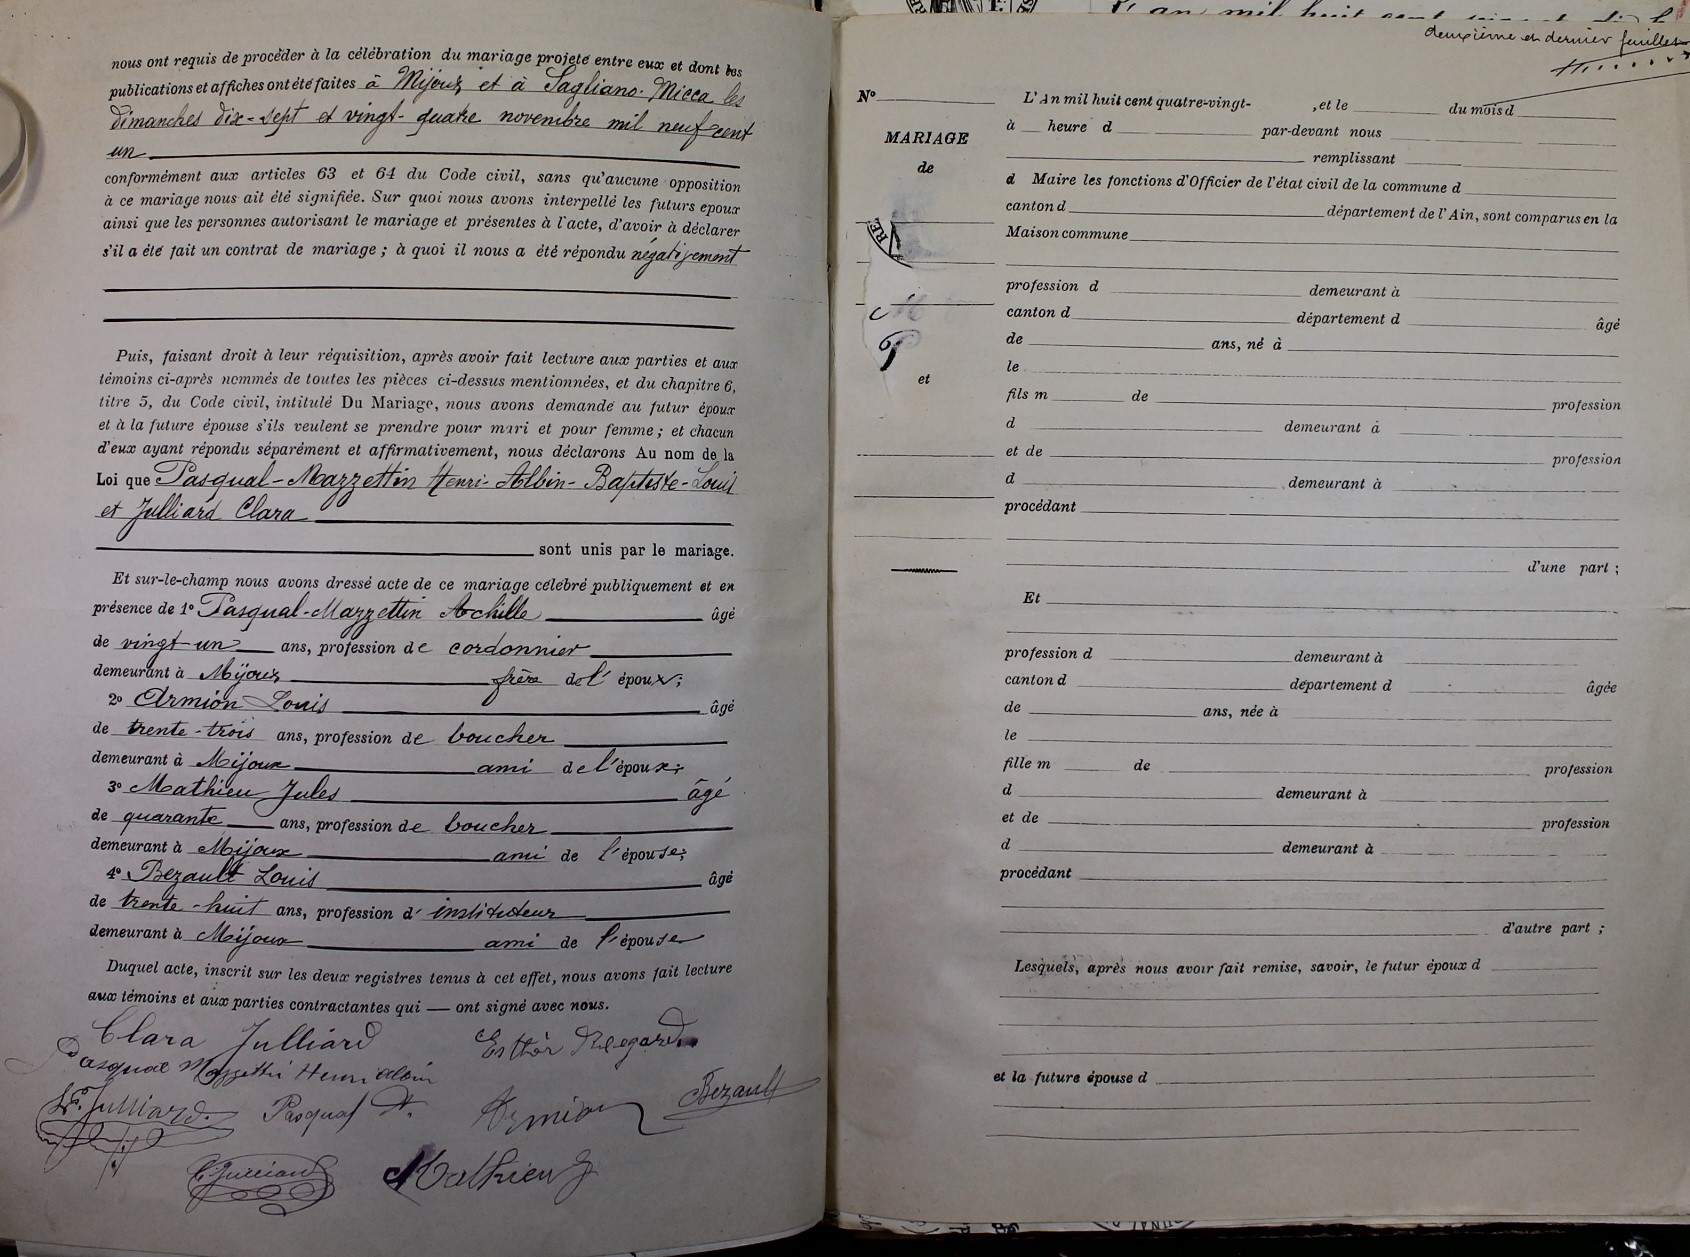 nous ont requis de procéder à la célébration du mariage projeté entre eux et dont les
publications et affiches ont été faites à Mijoux et à Sagliano-Micca les
dimanches dix-sept et vingt-quatre novembre mil neuf cent
un
conformément aux articles 63 et 64 du Code civil, sans qu'aucune opposition
à ce mariage nous ait été signifiée. Sur quoi nous avons interpellé les futurs epoux
ainsi que les personnes autorisant le mariage et présentes à l'acte, d'avoir à déclarer
s'il a été fait un contrat de mariage ; à quoi il nous a été répondu négativement
Puis, faisant droit à leur réquisition, après avoir fait lecture aux parties et aux
témoins ci-après nommés de toutes les pièces ci-dessus mentionnées, et du chapitre 6,
titre 5, du Code civil, intitulé Du Mariage, nous avons demandé au futur époux
et à la future épouse s'ils veulent se prendre pour mari et pour femme ; et chacun
d'eux ayant répondu séparément et affirmativement, nous déclarons Au nom de la
Loi que Pasqual-Mazzettin Henri-Albin-Baptiste-Louis
et Julliard Clara
sont unis par le mariage.
Et sur-le-champ nous avons dressé acte de ce mariage célébré publiquement et en
présence de 1° Pasqual-Mazzettin Achille âgé
de vingt-un ans, profession de cordonnier
demeurant à Mijoux frère de l'époux ;
2° Armion Louis âgé
de trente-trois ans, profession de boucher
demeurant à Mijoux ami de l'époux ;
3° Mathieu Jules âgé
de quarante ans, profession de boucher
demeurant à Mijoux ami de l'épouse ;
4° Bezault Louis âgé
de trente-huit ans, profession d'instituteur
demeurant à Mijoux ami de l'épouse
Duquel acte, inscrit sur les deux registres tenus à cet effet, nous avons fait lecture
aux témoins et aux parties contractantes qui — ont signé avec nous.
Clara Julliard Esther Regard
Pasqual Mazzettin Henri albin
Julliard Pasqual A. Armion Bezault
Mathieu J
deuxième et dernier feuillet
N°
MARIAGE
de
et
L'An mil huit cent quatre-vingt- , et le du mois d
à heure d par-devant nous
remplissant
d Maire les fonctions d'Officier de l'état civil de la commune d
canton d département de l'Ain, sont comparus en la
Maison commune
profession d demeurant à
canton d département d âgé
de ans, né à
le
fils m de profession
d demeurant à
et de profession
d demeurant à
procédant
d'une part ;
Et
profession d demeurant à
canton d département d âgée
de ans, née à
le
fille m de profession
d demeurant à
et de profession
d demeurant à
procédant
d'autre part ;
Lesquels, après nous avoir fait remise, savoir, le futur époux d
et la future épouse d